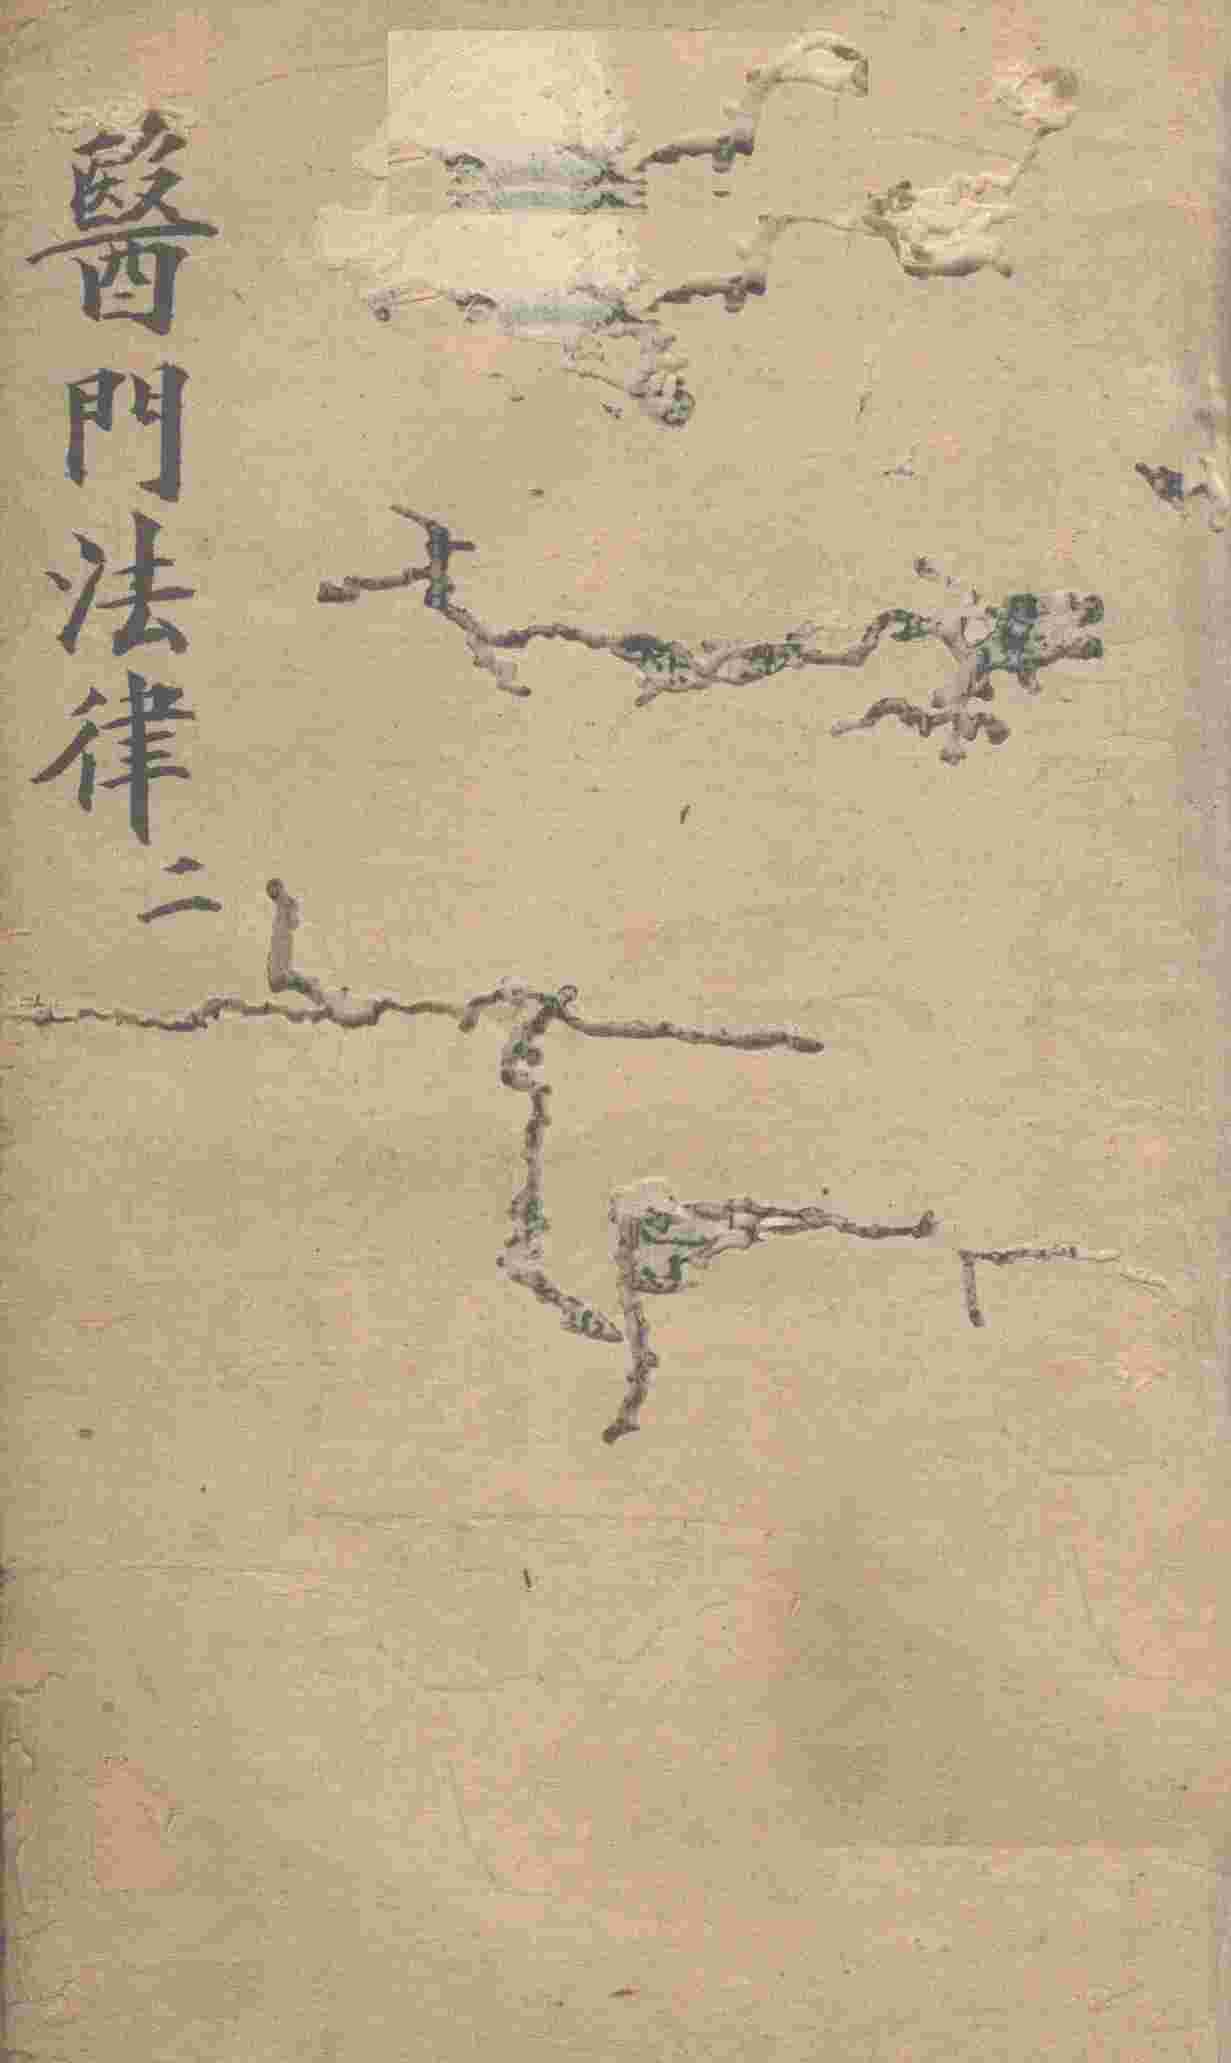 醫門法律二